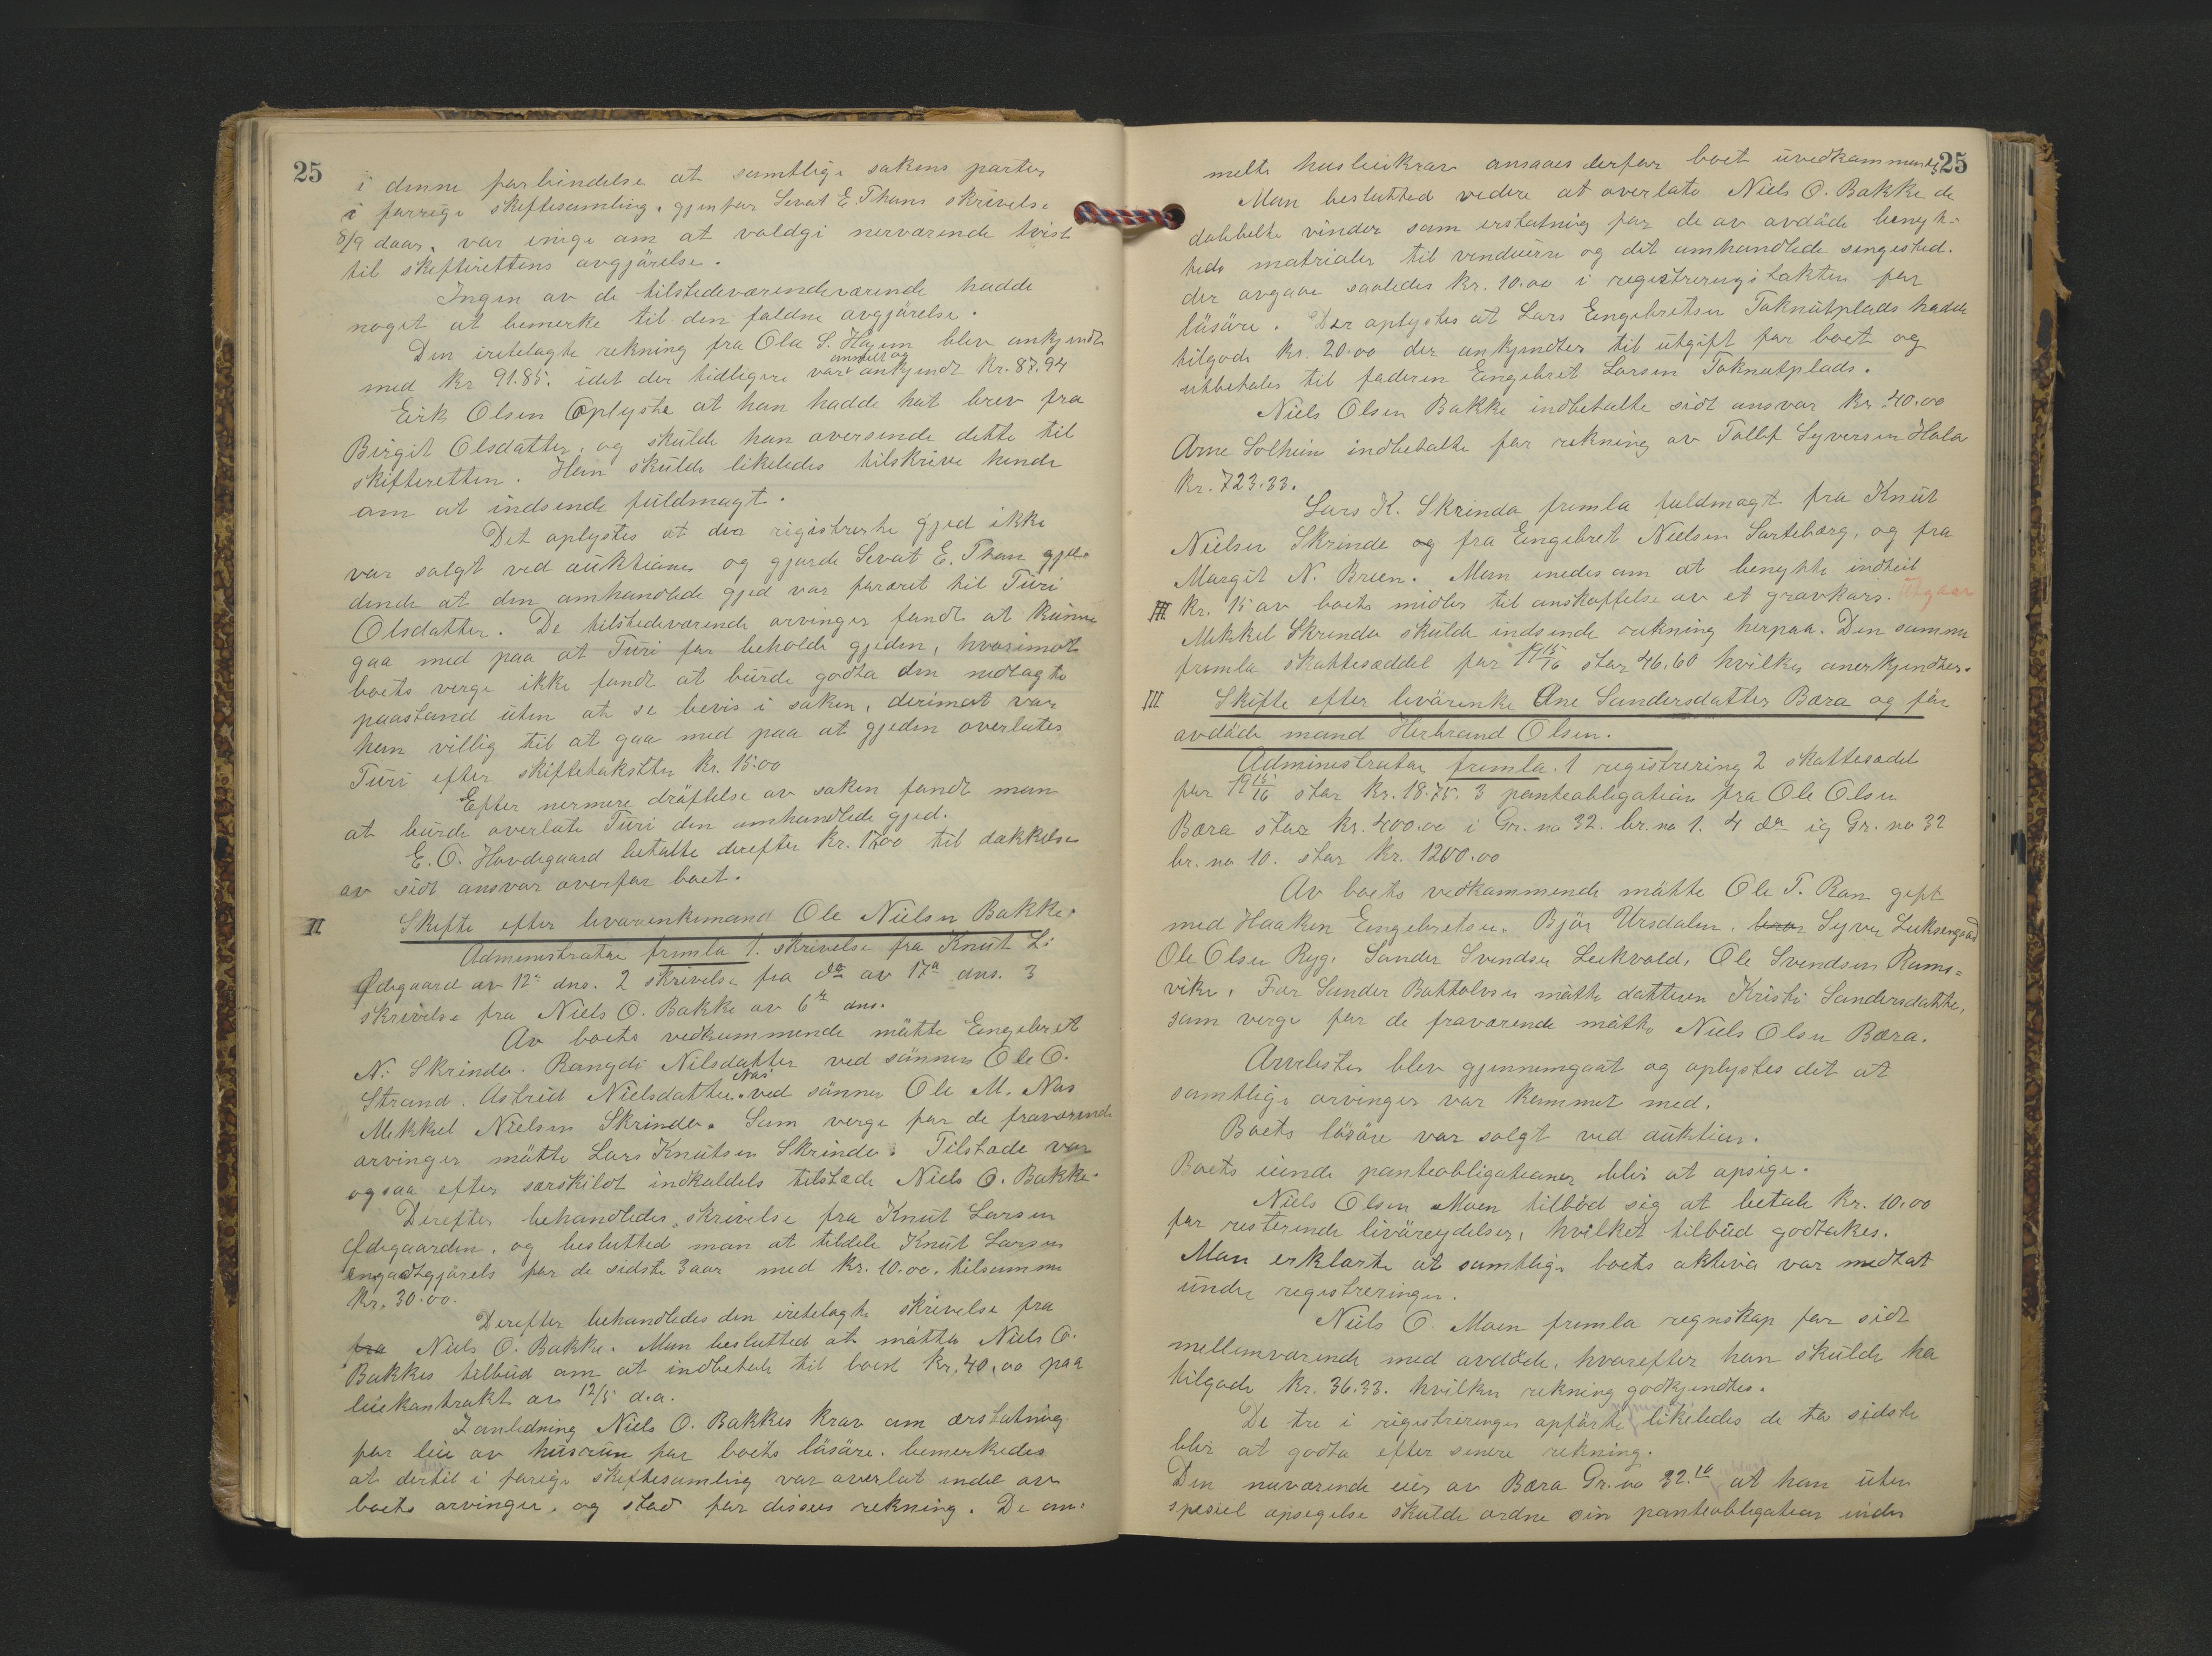 25
i denne forbindelse at samtlige sakens parter
i forrige skiftesamling. gjenfor Sevat E. Thons skrivelse
8/9 daar. var enige om at voldgi nerværende tvist
til skifterettens avgjörelse.
Ingen av de tilstedeværendeværende hadde
noget at bemerke til den faldne avgjörelse.
Den iretelagte rekning fra Ola S. blev ankjendt
med kr 91.85. idet der tidligere var anmeldt og ankjendt kr. 87.94
Eirk Olsen Oplyste at han hadde hat brev fra
Birgit Olsdatter, og skulde han oversende dette til
skifteretten. Han skulde likeledes tilskrive hende
om at indsende fuldmagt.
Det oplystes at den registrerte gjed ikke
var solgt ved auktionen og gjorde Sevat E. Thon gjel-
dende at den omhandlede gjed var foræret til Turi
Olsdatter. De tilstedeværende arvinger fandt at kunne
gaa med paa at Turi far beholde gjeden, hvorimot
boets verge ikke fandt at burde godta den nedlagte
paastand uten at se bevis i saken, derimot var
han villig til at gaa med paa at gjeden overlates
Turi efter skiftetaksten kr. 15.00
Efter nermere dröftelse av saken fandt man
at burde overlate Turi den omhandlede gjed.
E. O. Hovdegaard betalte derefter kr. 1500 til dækkelse
av sidt ansvar overfor boet.
II Skifte efter levaarenkemand Ole Nielsen Bakke.
Administrator fremla 1. skrivelse fra Knut L:
Ødegaard av 12te dns. 2 skrivelse fra do av 17de dns. 3
skrivelse fra Niels O. Bakke av 6te dns.
Av boets vedkommende mötte Engebret
N. Skrinde. Rangdi Nilsdatter ved sönnen Ole O.
Strand. Astrid Nielsdatter Næs ved sönnen Ole M. Næs
Mekkel Nielsen Skrinde. Som verge for de fraværende
arvinger mötte Lars Knutsen Skrinde. Tilstede var
ogsaa efter særskildt indkaldels tilstede Niels O. Bakke.
Derefter behandledes skrivelse fra Knut Larsen
Ødegaarden, og beslutted man at tildele Knut Larsen
engodtgjörels for de sidste 3 aar med kr. 10.00. tilsammen
kr. 30.00.
Derefter behandledes den iretelagte skrivelse fra
fra Niels O. Bakke. Man beslutted at motta Niels O.
Bakkes tilbud om at indbetale til boet kr. 40.00 paa
leiekontrakt av 12/5 d.a.
I anledning Niels O. Bakkes krav om erstatning
for leie av husrum for boets lösöre. bemerkedes
at dertil i forrige skiftesamling var overlat endel av
boets arvinger, og stod for disses rekning. De an-
25
melte husleiekrav ansaaes derfor boet uvedkommende
Man beslutted videre at overlate Niels O. Bakke de
dobbelte vinder som erstatning for de av avdöde benyt-
tede matrialer til vinduerne og det omhandlede sengested.
der avgaar saaledes kr. 10.00 i registreringstakten for
lösöre. Der oplystes at Lars Engebretsen Toknutplads hadde
tilgode kr. 20.00 der ankjendtes til utgift for boet og
utbetales til faderen Engebret Larsen Toknutplads.
Niels Olsen Bakke indbetalte sidt ansvar kr. 40.00
Arne Solheim indbetalte for rekning av Tollef Syversen Hola
kr. 723.33.
Lars K. Skrinde fremla fuldmagt fra Knut
Nielsen Skrinde og fra Engebret Nielsen Sarteberg, og fra
Margit N. Breen. Man enedes om at benytte indtil
kr. 15 av boets midler til anskaffelse av et gravkors. Utgaar
Mekkel Skrinde skulde indsende rekning herpaa. Den samme
fremla skattesæddel for 1915/16 stor 46.60 hvilken anerkjendtes.
III Skifte efter levårenke Ane Sandersdatter Bæra og för
avdöde mand Herbrand Olsen.
Administrator fremla 1 registrering 2 skattesedel
for 1915/16 stor kr. 18.75. 3 panteobligation fra Ole Olsen
Bæra stor kr. 400.00 i Gr. no 32. br. no 1. 4 do ig Gr. no 32
br. no 10. stor kr. 1200.00
Av boets vedkommende mötte Ole T. Ran gift
med Haaken Engebretsen. Björ Ursdalen. Syver
Ole Olsen Ryg. Sander Svendsen Leekvold. Ole Svendsen Rams-
vike. For Sander Bottolvsen mötte datteren Kristi Sandersdatter,
som verge for de fraværende mötte Niels Olsen Bæra.
Arvelisten blev gjennemgaat og oplystes det at
samtlige arvinger var kommet med.
Boets lösöre var solgt ved auktion.
Boets eiende panteobligationer blir at opsige.
Niels Olsen Moen tilböd sig at betale kr. 10.00
for resterende livöreydelser, hvilket tilbud godtakes.
Man erklærte at samtlige boets aktiva var medtat
under registreringen.
Niels O. Moen fremla regnskap for sidt
mellemværende med avdöde, hvorefter han skulde ha
tilgode kr. 36.33. hvilken rekning godkjendtes.
De tre i registreringen opförte likeledes de to sidste
blir at godta efter senere rekning.
Den nuværende eier av Bæra Gr. no 32.10 at han uten
spesiel opsigelse skulde ordne sin panteobligation inden